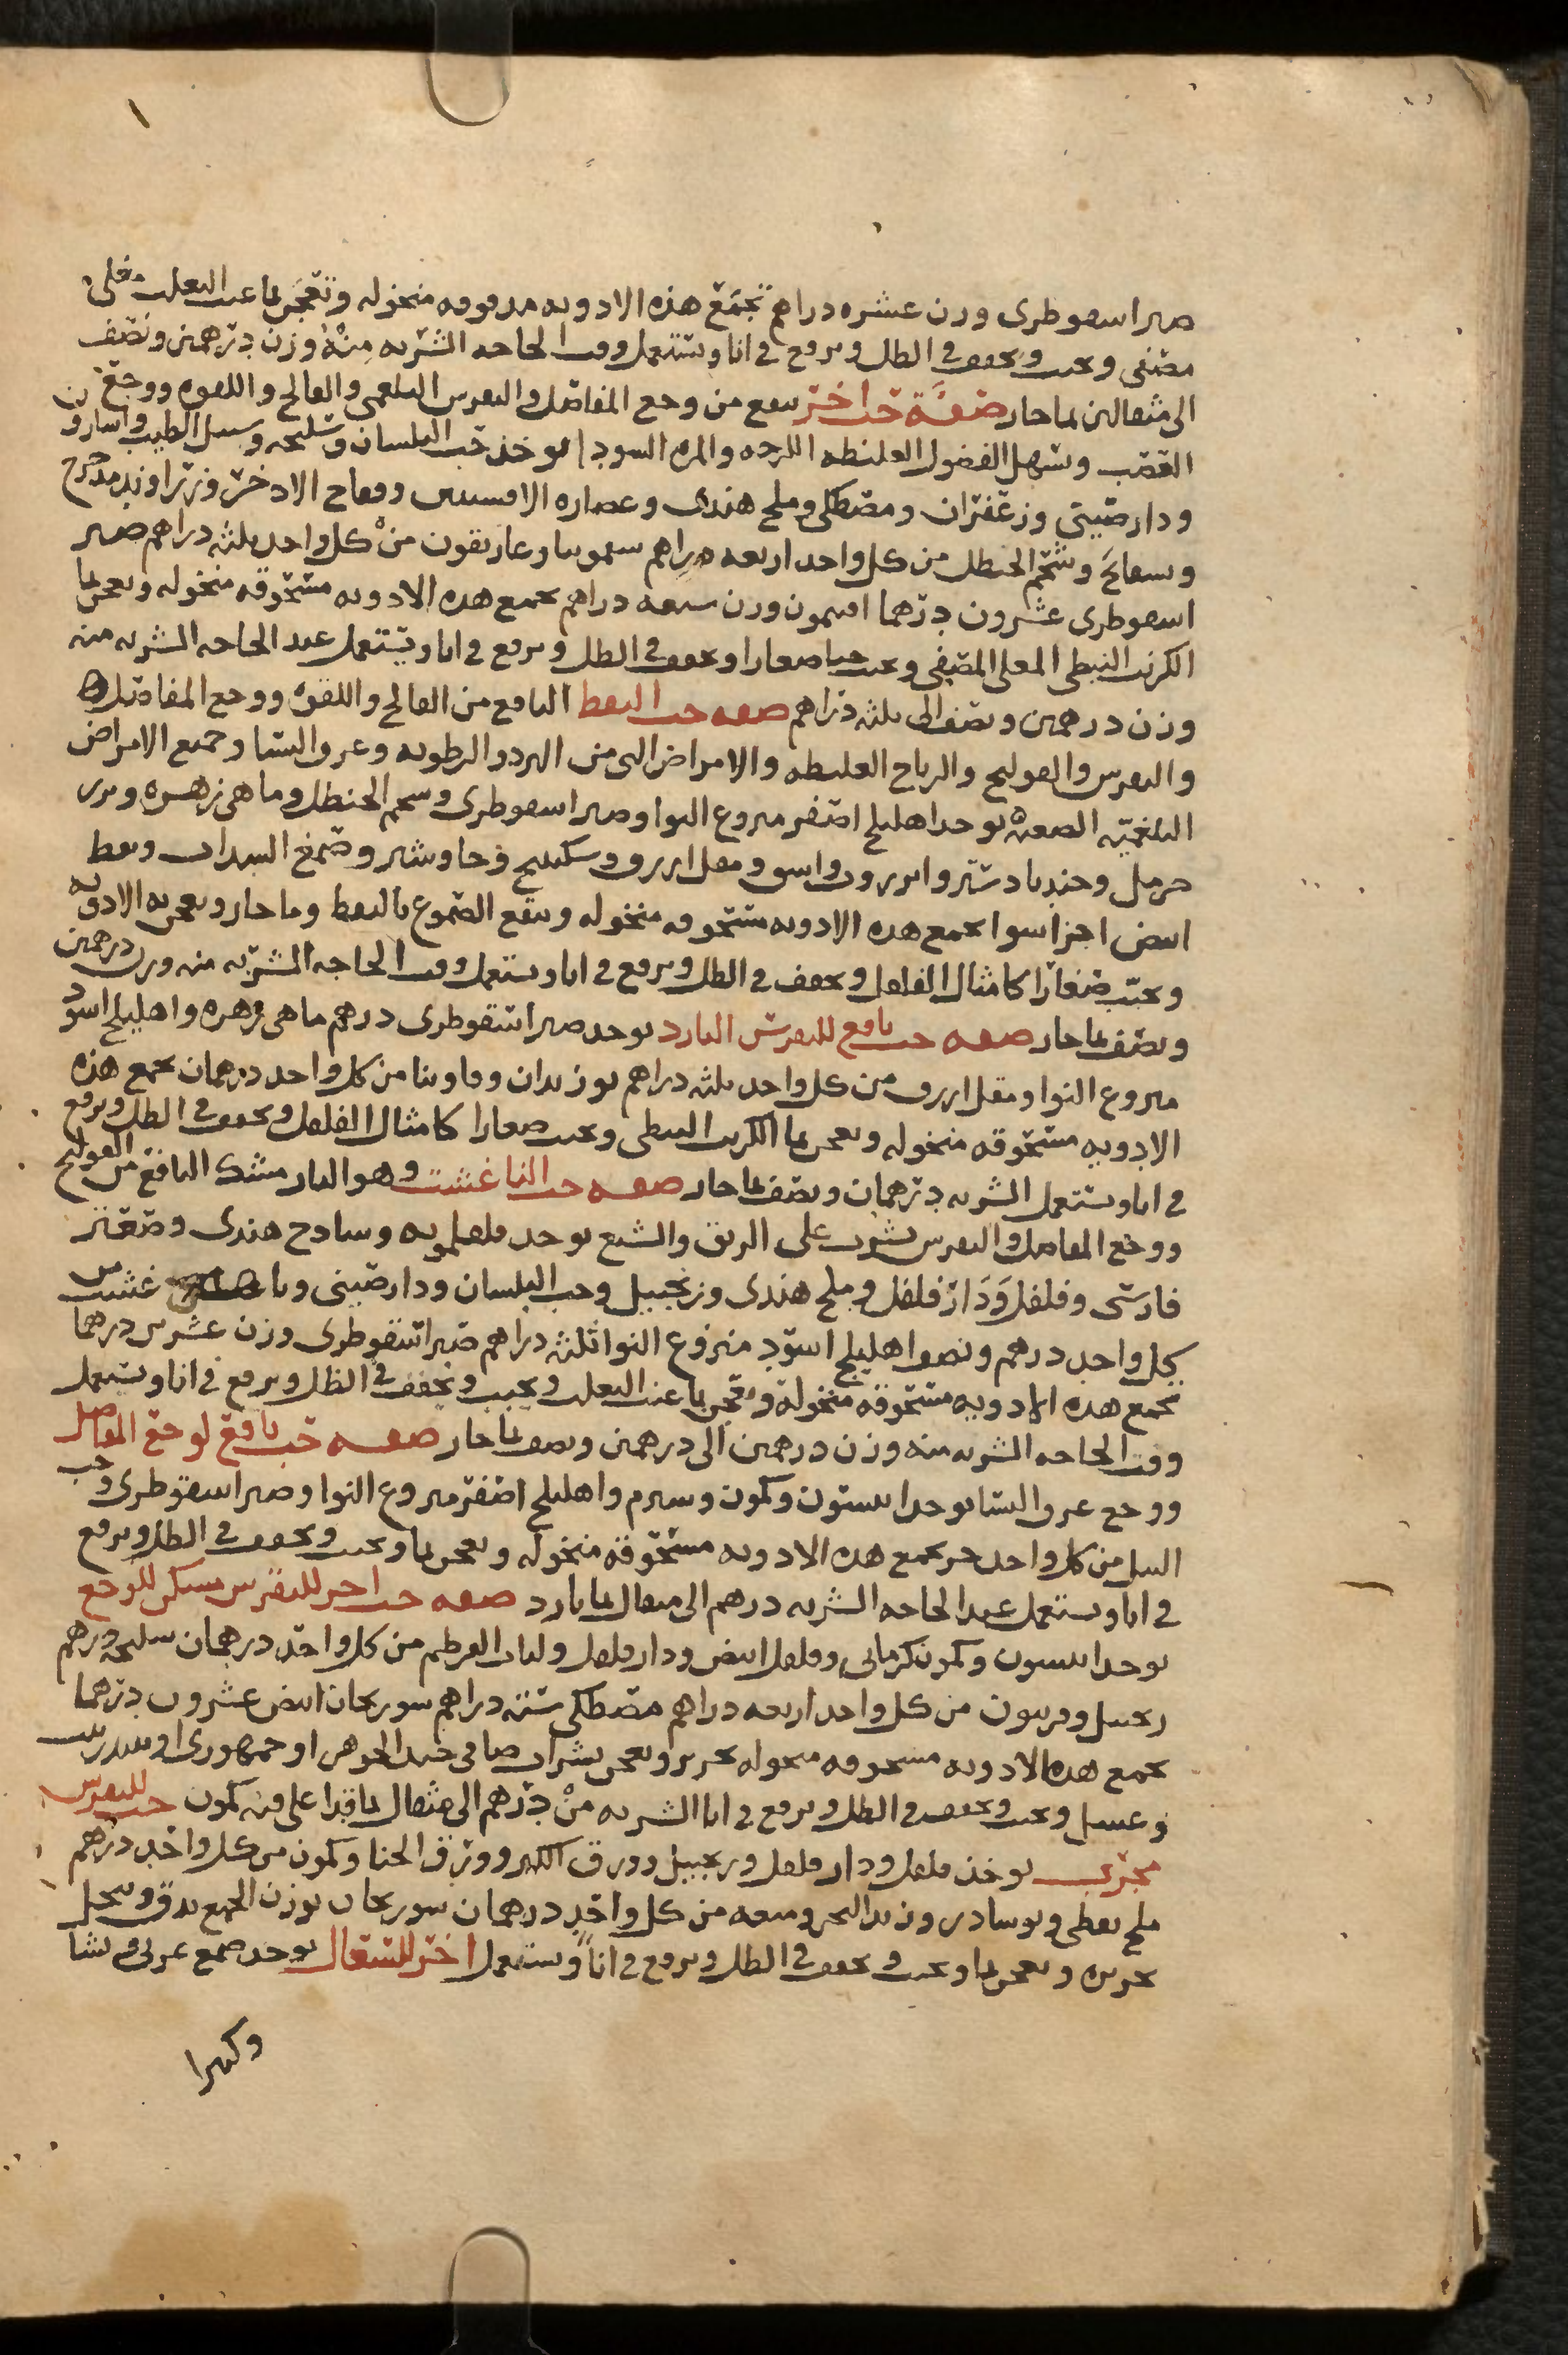 ١
صبر اسقوطرى وزن عشره دراهم تجمع هذه الادويه مدقوقه منخوله وتعجن بما عنب الثعلب مغلى
مصفى ويحبب ويجفف فى الظل ويرفع فى انا ويستعمل وقت الحاجه الشربه منه وزن درهمين ونصف
الى مثقالين بما حار صفة حب اخر ينفع من وجع المفاصل والنقرس البلغمى والفالج واللقوه ووجع
العصب ويسهل الفضول الغليظه اللزجه والمره السودا يوخذ حب البلسان وسليخه وسنبل الطيب واسارون
ودارصينى وزعفران ومصطكى وملح هندى وعصاره الافسنتين وفقاح الاذخر وزراوند مدحرج
وبسفايج وشحم الحنظل من كل واحد اربعه دراهم سقمونيا وغاريقون من كل واحد ثلثه دراهم صبر
اسقوطرى عشرون درهما افتيمون وزن سبعه دراهم تجمع هذه الادويه مسحوقه منخوله وتعجن بما
الكرنب النبطى المغلى المصفى ويحبب حبا صغارا ويجفف فى الظل ويرفع فى انا ويستعمل عند الحاجه الشربه منه
وزن درهمين ونصف الى ثلثه دراهم صفه حب النفط النافع من الفالج واللقوه ووجع المفاصل
والنقرس والقولنج والرياح الغليظه والامراض التى من البرد والرطوبه وعرق النسا وجميع الامراض
البلغميه الصعبه يوخذ اهليلج اصفر منزوع النوا وصبر اسقوطرى وشحم الحنظل وماهى زهره وبزر
حرمل وجندبادستر وانزروت واشق ومقل ازرق وسكبينج وجاوشير وصمغ السداب ونفط
ابيض اجزا سوا تجمع هذه الادويه مسحوقه منخوله وينقع الصموغ بالنفط وما حار ويعجن به الادويه
ويحبب صغارا كامثال الفلفل ويجفف فى الظل ويرفع فى انا ويستعمل وقت الحاجه الشربه منه وزن درهمين
ونصف بما حار صفه حب نافع للنقرس البارد يوخذ صبر اسقوطرى درهم ماهى زهره واهليلج اسود
منزوع النوا ومقل ازرق من كل واحد ثلثه دراهم بوزيدان وفاوينا من كل واحد درهمان تجمع هذه
الادويه مسحوقه منخوله وتعجن بما الكرنب النبطى ويحبب صغارا كامثال الفلفل ويجفف فى الظل ويرفع
فى انا ويستعمل الشربه درهمان ونصف بما حار صفه حب الناغشت وهو النارمشك النافع من القولنج
ووجع المفاصل والنقرس يشرب على الريق والشبع يوخذ فلفلمويه وساذج هندى وصعتر
فارسى وفلفل ودارفلفل وملح هندى وزنجبيل وحب البلسان ودارصينى وناغشت من
كل واحد درهم ونصف اهليلج اسود منزوع النوا ثلثه دراهم صبر اسقوطرى وزن عشرين درهما
تجمع هذه الادويه مسحوقه منخوله وتعجن بما عنب الثعلب ويحبب ويجفف فى الظل ويرفع فى انا ويستعمل
وقت الحاجه الشربه منه وزن درهمين الى درهمين ونصف بما حار صفه حب نافع لوجع المفاصل
ووجع عرق النسا يوخذ انيسون وكمون وشبرم واهليلج اصفر منزوع النوا وصبر اسقوطرى وحب
النيل من كل واحد جز تجمع هذه الادويه مسحوقه منخوله وتعجن بما ويحبب ويجفف فى الظل ويرفع
فى انا ويستعمل عند الحاجه الشربه درهم الى مثقال بما بارد صفه حب اخر للنقرس مسكن للوجع
يوخذ انيسون وكمون كرمانى وفلفل ابيض ودارفلفل ولباب القرطم من كل واحد درهمان سليخه درهم
زنجبيل وفربيون من كل واحد اربعه دراهم مصطكى سته دراهم سورنجان ابيض عشرون درهما
تجمع هذه الادويه مسحوقه منخوله بحرير وتعجن بشراب صافى جيد الجوهر او جمهورى او
وعسل ويحبب ويجفف فى الظل ويرفع فى انا الشربه من درهم الى مثقال بما قد اغلى فيه كمون حب للنقرس
مجرب يوخذ فلفل ودارفلفل وزنجبيل وورق الكبر وورق الحنا وكمون من كل واحد درهم
ملح نفطى ونوشادر وزبد البحر وميعه من كل واحد درهمان سورنجان بوزن الجميع يدق وينخل
بحريره ويعجن بما ويحبب ويجفف فى الظل ويرفع فى انا ويستعمل اخر للسعال يوخذ صمغ عربى ونشا
وكثيرا